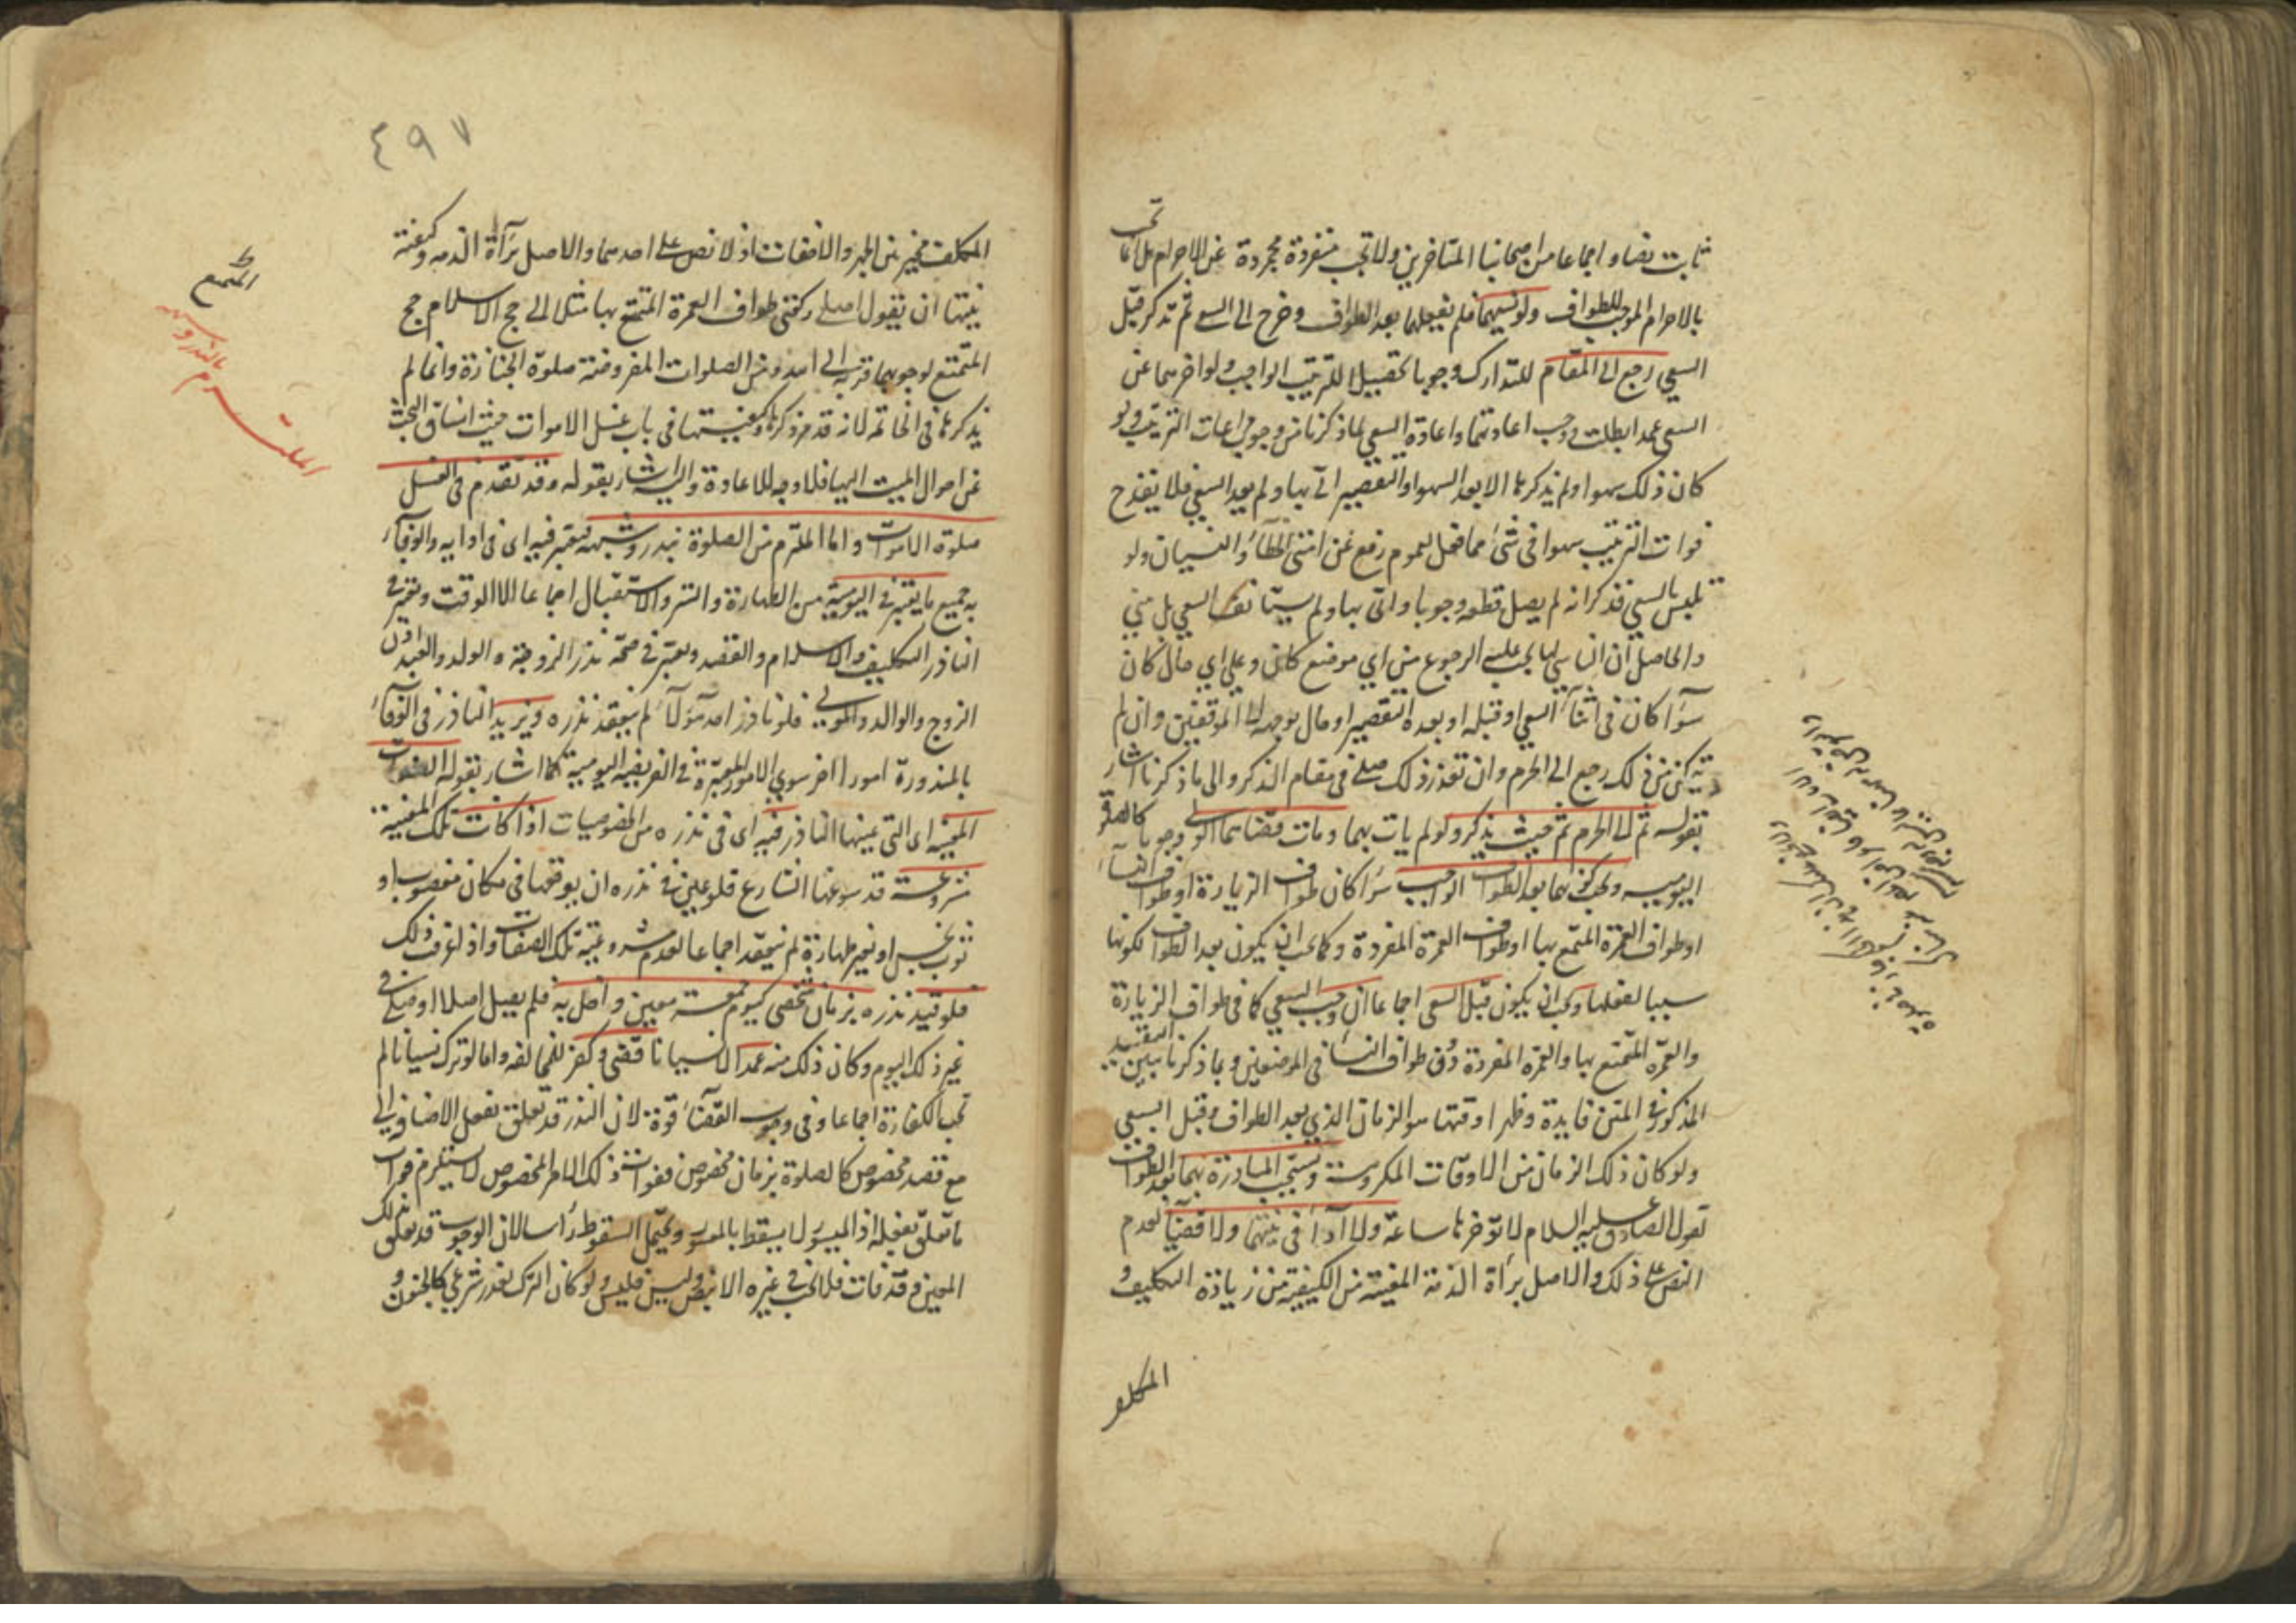 ثابت نصا و اجماعا من اصحابنا المتأخرين ولا تجب منفردة مجردة عن الاحرام بل انما تجب
بالاحرام الموجب للطواف ولو نسيهما فلم يفعلهما بعد الطواف وخرج الى السعي ثم تذكر قبل
السعي رجع الى المقام للتدارك وجوبا تحصيلا للترتيب الواجب ولو اخرهما عن
السعي عمدا بطلت ووجب اعادتهما واعادة السعي لما ذكرنا من وجوب مراعات الترتيب ولو
كان ذلك سهوا ولم يذكرها الا بعد السهو او التقصير اتى بها ولم يعد السعي فلا يقدح
فوات الترتيب سهوا في شئ مما فعل لعموم رفع عن امتي الخطأ والنسيان ولو
تلبس بالسعي فذكر انه لم يصل قطعه وجوبا واتى بها ولم يستأنف السعي بل يبني
والحاصل ان الناسي لها يجب عليه الرجوع من اي موضع كان وعلى اي حال كان
سوآء كان في اثنآء السعي او قبله او بعده التقصير او حال توجه الى الموقفين وان لم
يتمكن من ذلك رجع الى الحرم وان تعذر ذلك صلى في مقام الذكر والى ما ذكرنا اشار
بقوله ثم الى الحرم ثم حيث يذكر ولو لم يات بهما ومات قضاهما الولي وجوبا كالصلوة
اليومية ومحلهما بعد الطواف الواجب سوآء كان طواف الزيارة او طواف النسآء
او طواف العمرة المتمتع بها او طواف العمرة المفردة وكما يجب ان يكون بعد الطواف لكونها
سببا لفعلها وجب ان يكون قبل السعي اجماعا ان وجب السعي كما في طواف الزيارة
والعمرة المتمتع بها والعمرة المفردة دون طواف النسآء في الموضعين وبما ذكرنا تبين للتقييد
المذكور في المتن فايدة وظهر ان وقتها هو الزمان الذي بعد الطواف وقبل السعي
ولو كان ذلك الزمان من الاوقات المكروهة ويستحب المبادرة بهما بعد الطواف
لقول الصادق عليه السلام لا تؤخرها ساعة ولا اداء في نيتهما ولا قضآء لعدم
النص على ذلك والاصل برأة الذمة المعينة من الكيفية من زيادة التكليف و
المكلف
٤٩٧
المكلف مخير بين الجهر والاخفات اذ لا نص على احدهما والاصل برآءة الذمه وكيفية
نيتها ان يقول اصلي ركعتي طواف العمرة المتمتع بها مثلا الى حج الاسلام حج
المتمتع لوجوبهما قربة الى الله ومن الصلوات المفروضة صلوة الجنازة وانما لم
يذكرها في الخاتمه لانه قد مر ذكرها وكيفيتها في باب غسل الاموات حيث انساق البحث
عن احوال الميت اليها فلا وجه للاعادة واليه اشار بقوله وقد تقدم في الغسل
صلوة الاموات واما الملتزم من الصلوة بنذر وشبهه فيعتبر فيه اى في ادايه والوفآء
به جميع ما يعتبر في اليومية من الطهارة والستر والاستقبال اجماعا الا الوقت ويعتبر في
الناذر التكليف والاسلام والقصد ويعتبر في صحة نذر الزوجة والولد والعبد اذن
الزوج والوالد والمولى فلو نذر احد هؤلآء لم ينعقد نذره ويزيد الناذر في الوفآء
بالمنذورة امورا اخر سوي الامور المعتبرة في الفريضه اليومية كما اشار بقوله الصفات
المعينه اى التي عينها الناذر فيه اى في نذره من الخصوصيات اذا كانت تلك المعينة
مشروعة قد سوغها الشارع فلو عين في نذره ان يوقعها في مكان مغصوب او
ثوب نجس او بغير طهارة لم ينعقد اجماعا لعدم مشروعية تلك الصفات واذا عرفت ذلك
فلو قيد نذره بزمان شخصي كيوم جمعة معين واخل به فلم يصل اصلا او صلى في
غير ذلك اليوم وكان ذلك منه عمدا لا نسيانا قضى وكفر للمخالفه واما لو ترك نسيانا لم
تجب الكفارة اجماعا وفي وجوب القضآء قوة لان النذر قد تعلق بفعل الاضافه الى
مع قصد مخصوص كالصلوة بزمان مخصوص ففوات ذلك الامر المخصوص لا يستلزم فوات
ما تعلق بفعله اذ الميسور لا يسقط بالمعسور ويحتمل السقوط رأسا لان الوجوب قد تعلق بذلك
المعين وقد فات فلا تجب في غيره الا بنص وليس فليس ولو كان الترك لعذر شرعي كالجنون و
الملتزم بالنذر وشبهه